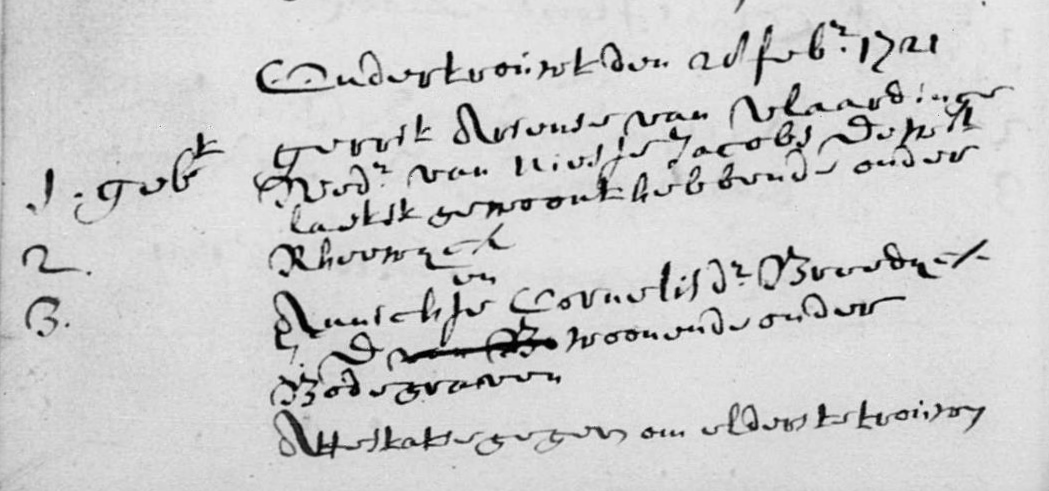 Ondertrouwt den 28 febr. 1721
1. gebt gerrit Ariense van Vlaardinge
Wedr. van Niesje Jacobs de welk
laetst gewoont hebbende onder
2. Rheewyck
en
3. Annichje Cornelisdr. Breedyck
J. D. woonende onder
Bodegraven
Attestatie gegeven om elders te trouwen